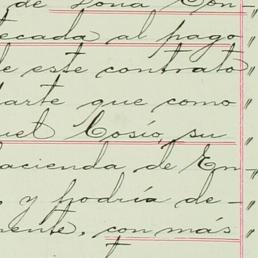 de Doña Con-
tecada al pago
de este contrato
parte que como
uel Cosío, su
acienda de En-
, y podría de-
mente, con más